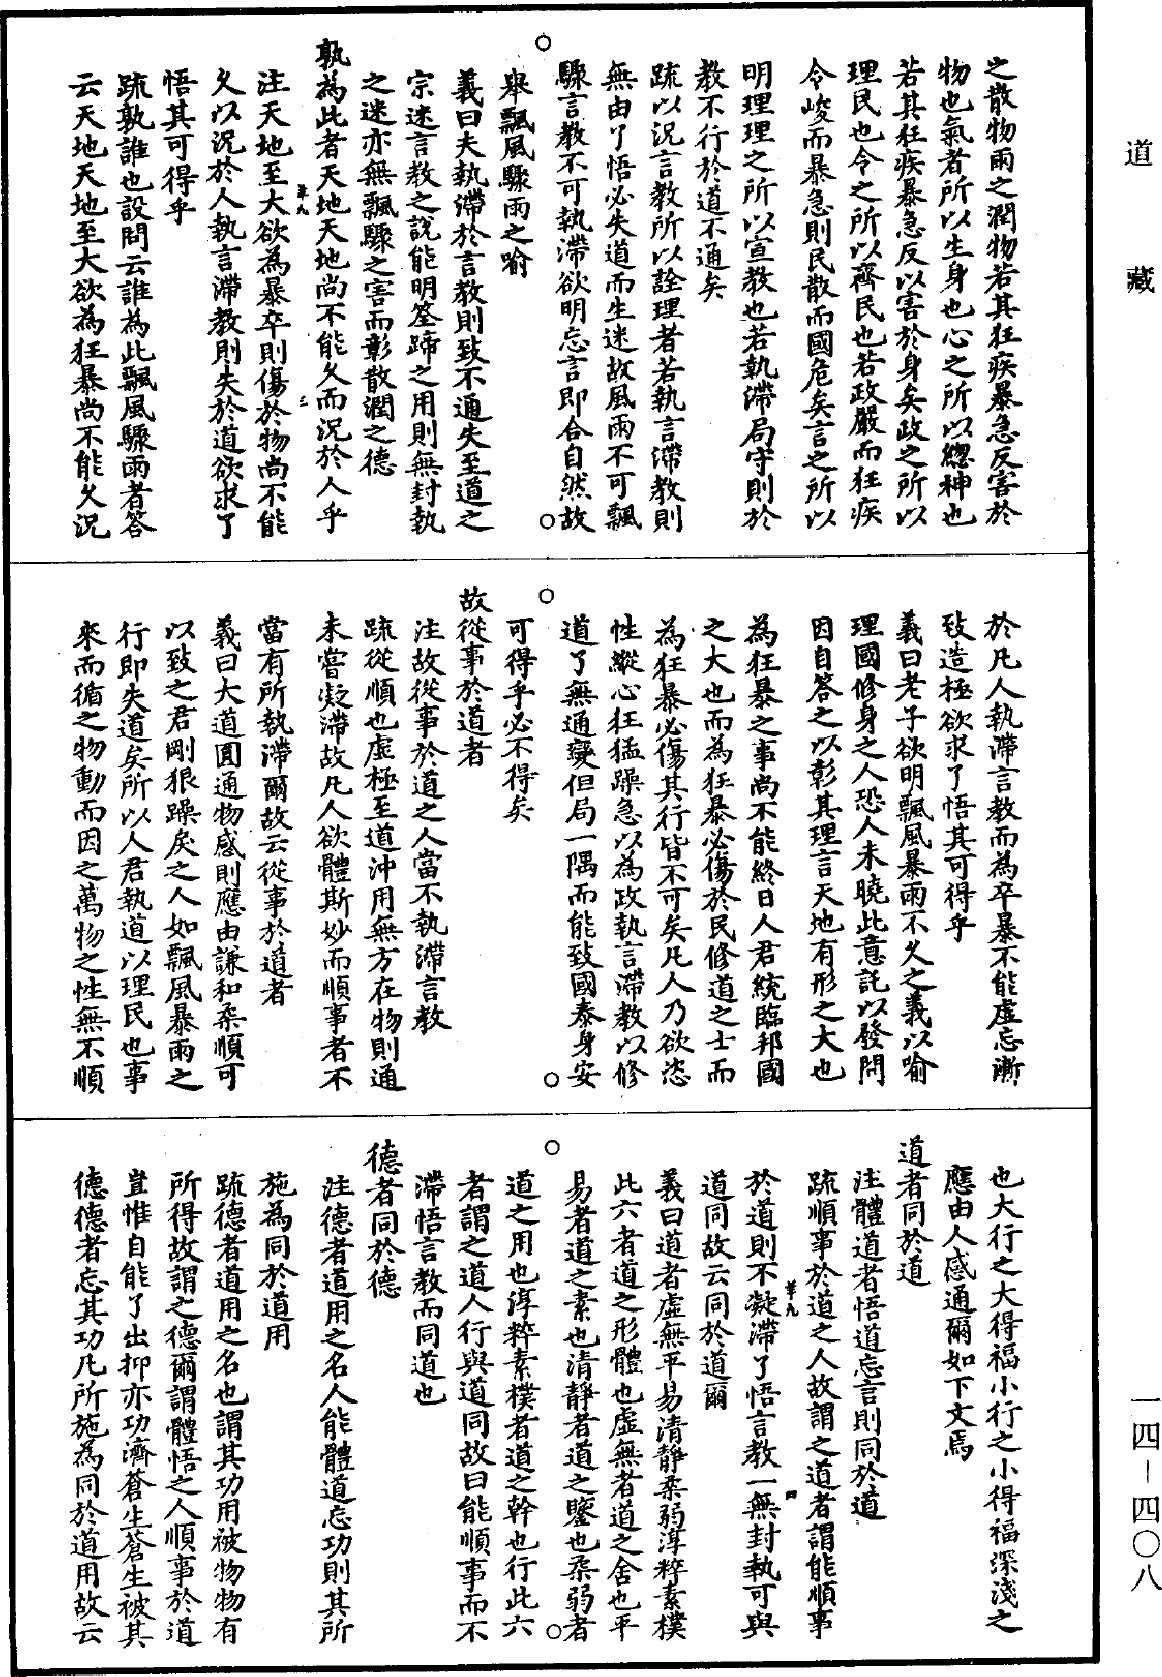 道藏
之散物雨之潤物若其狂疾暴急反害於
物也氣者所以生身也心之所以總神也
若其狂疾暴急反以害於身矣政之所以
理民也令之所以齊民也若政嚴而狂疾
令峻而暴急則民散而國危矣言之所以
明理理之所以宣教也若執滯局守則於
教不行於道不通矣
疏以況言教所以詮理者若執言滯教則
無由了悟必失道而生迷故風雨不可飄
驟言教不可執滯欲明忘言即合自然故
舉飄風驟雨之喻
義曰夫執滯於言教則致不通失至道之
宗迷言教之說能明筌蹄之用則無封執
之迷亦無飄驟之害而彰散潤之德
孰為此者天地天地尚不能久而況於人乎
注天地至大欲為暴卒則傷於物尚不能
久以況於人執言滯教則失於道欲求了
悟其可得乎
疏孰誰也設問云誰為此飄風驟雨者答
云天地天地至大欲為狂暴尚不能久況
於凡人執滯言教而為卒暴不能虛忘漸
致造極欲求了悟其可得乎
義曰老子欲明飄風暴雨不久之義以喻
理國修身之人恐人未曉此意託以發問
因自答之以彰其理言天地有形之大也
為狂暴之事尚不能終日人君統臨邦國
之大也而為狂暴必傷於民修道之士而
為狂暴必傷其行皆不可矣凡人乃欲恣
性縱心狂猛躁急以為政執言滯教以修
道了無通變但局一隅而能致國泰身安
可得乎必不得矣
故從事於道者
注故從事於道之人當不執滯言教
疏從順也虛極至道沖用無方在物則通
未嘗凝滯故凡人欲體斯妙而順事者不
當有所執滯爾故云從事於道者
義曰大道圓通物感則應由謙和柔順可
以致之君剛狠躁戾之人如飄風暴雨之
行即失道矣所以人君執道以理民也事
來而循之物動而因之萬物之性無不順
也大行之大得福小行之小得福深淺之
應由人感通爾如下文焉
道者同於道
注體道者悟道忘言則同於道
疏順事於道之人故謂之道者謂能順事
於道則不凝滯了悟言教一無封執可與
道同故云同於道爾
義曰道者虛無平易清靜柔弱淳粹素樸
此六者道之形體也虛無者道之舍也平
易者道之素也清靜者道之鑒也柔弱者
道之用也淳粹素樸者道之幹也行此六
者謂之道人行與道同故曰能順事而不
滯悟言教而同道也
德者同於德
注德者道用之名人能體道忘功則其所
施為同於道用
疏德者道用之名也謂其功用被物物有
所得故謂之德爾謂體悟之人順事於道
豈惟自能了出抑亦功濟蒼生蒼生被其
德德者忘其功凡所施為同於道用故云
一四—四〇八